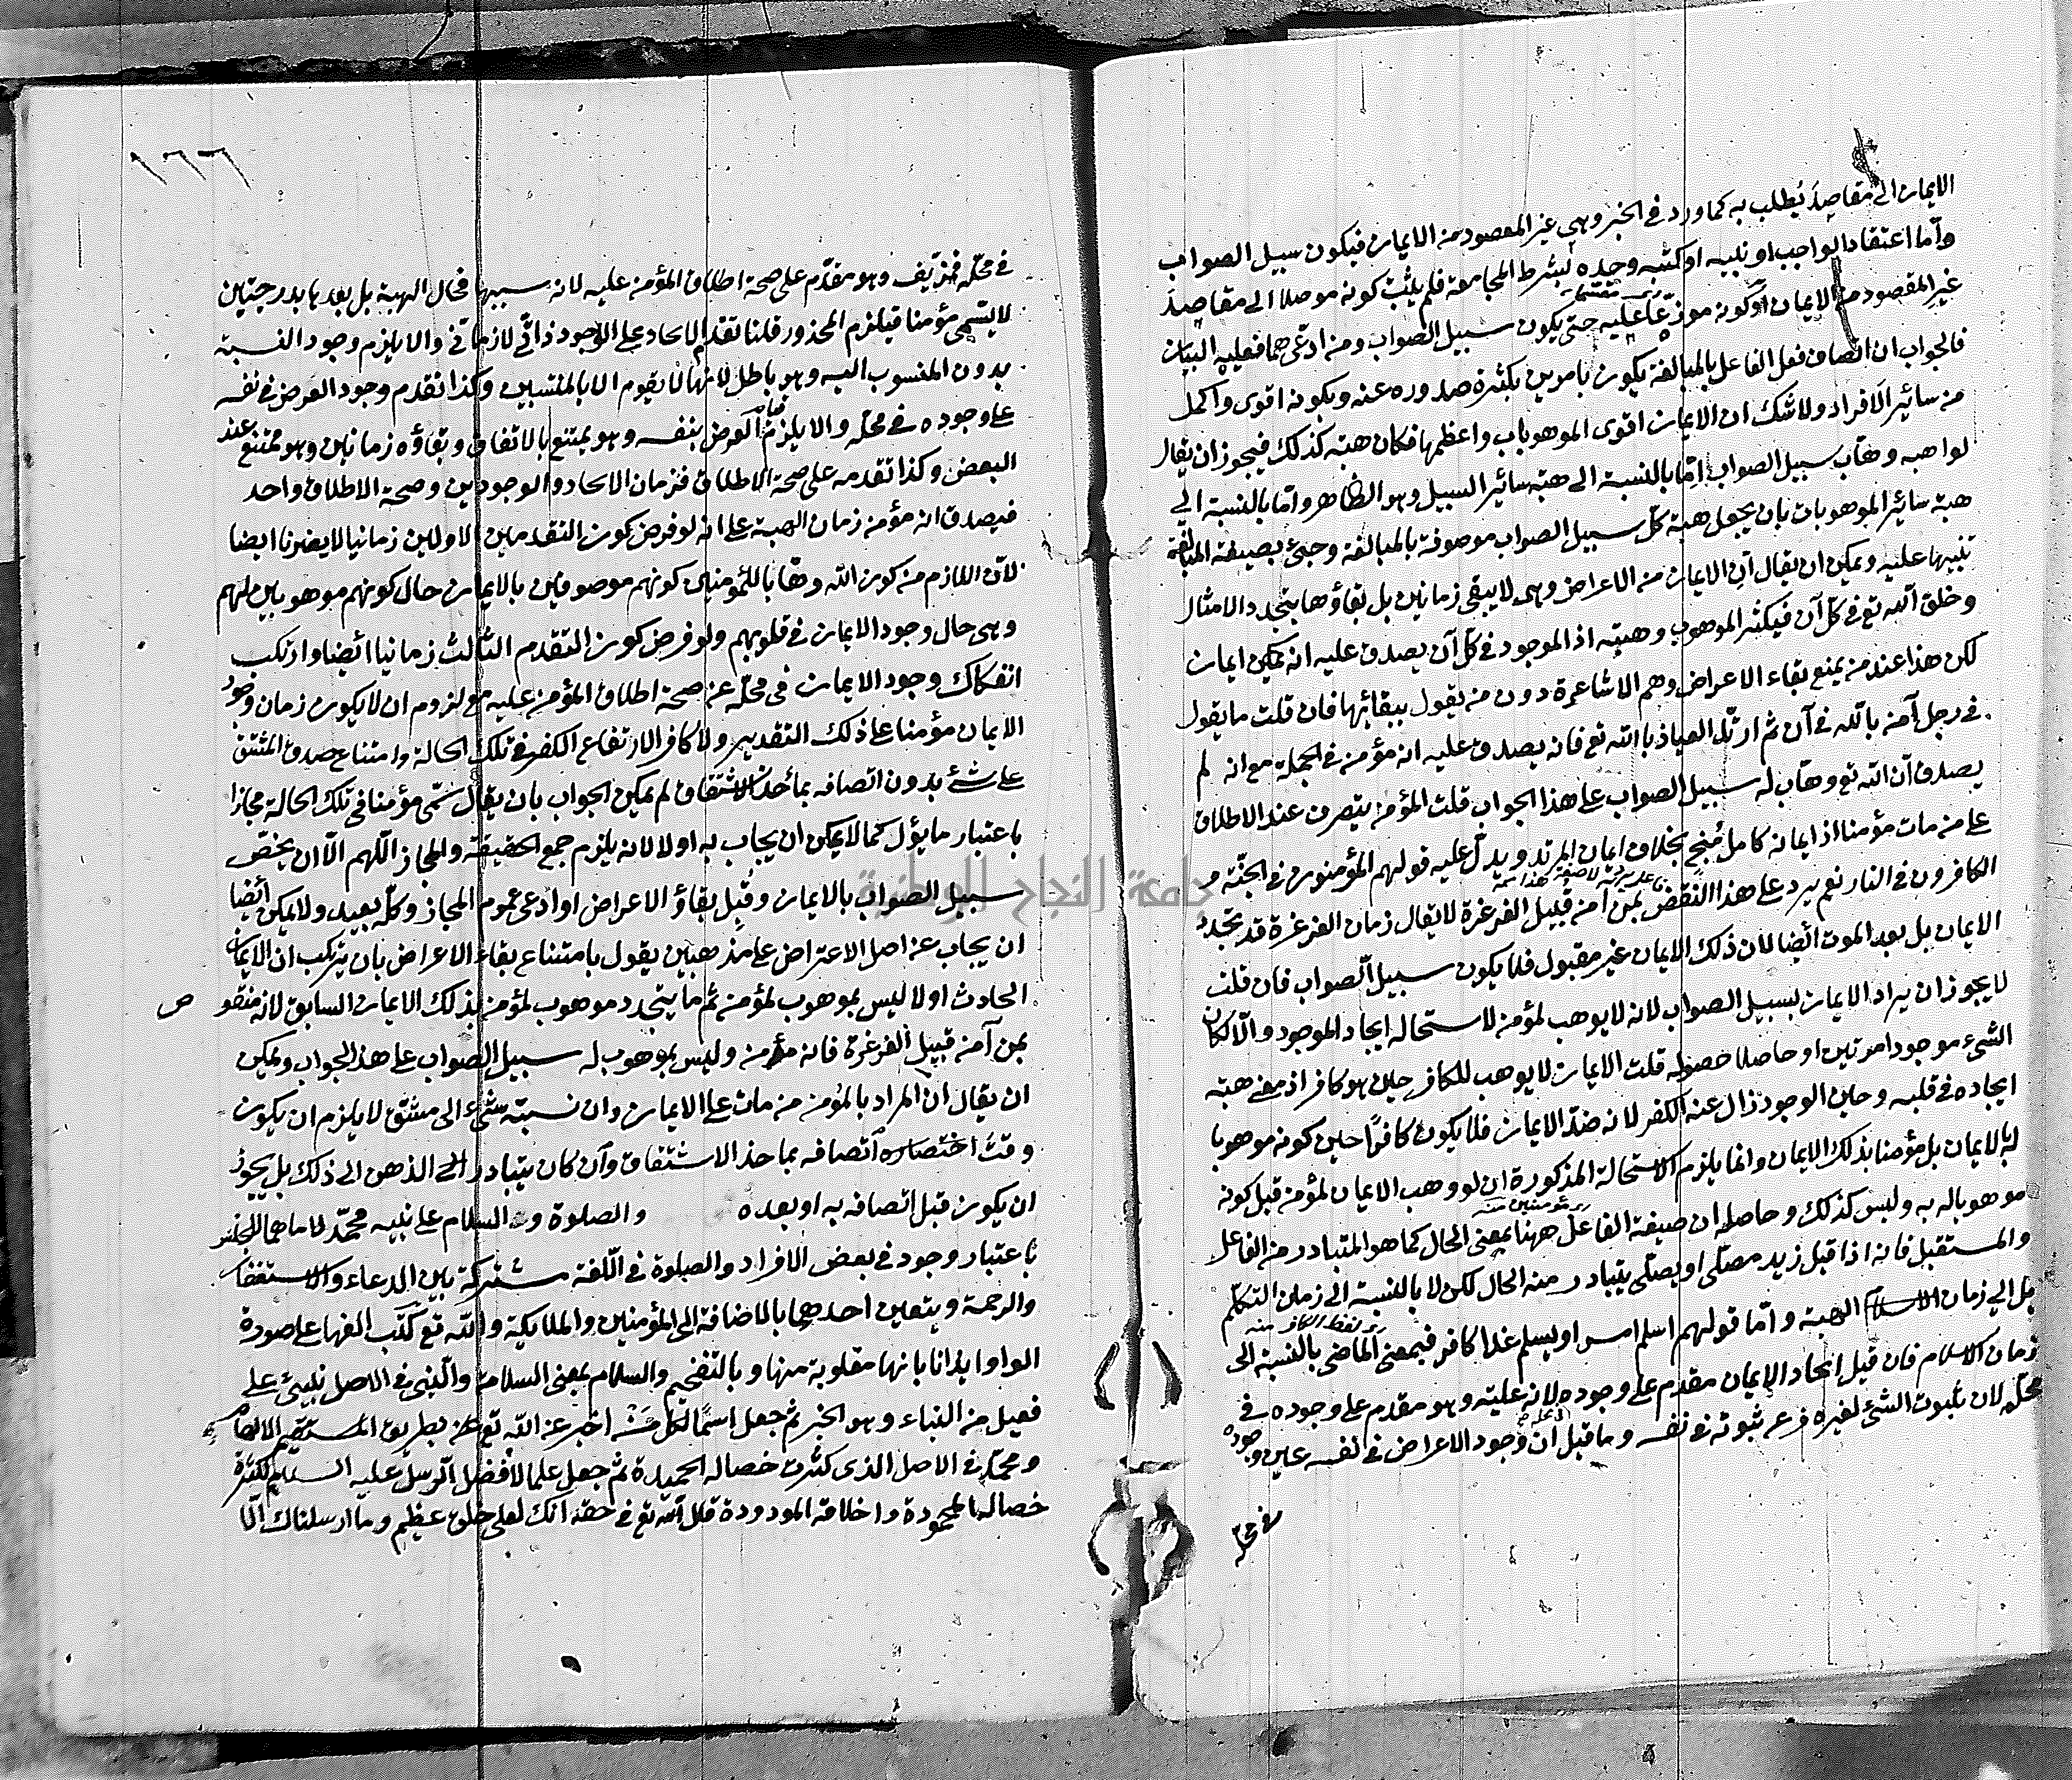 الايمان الى مقاصد يُطلب به كما ورد في الخبر وهى غير المقصود من الايمان فيكون سبيل الصواب
وأما اعتقاد الواجب او نبيه او كتبه وحده بشرط المجامعة فلم يثبت كونه موصلا الى مقاصد
غير المقصود من الايمان او كونه موزعا عليه حتى يكون سبيل الصواب ومن ادعى هما فعليه البيان
فالجواب ان اتصاف فعل الفاعل بالمبالغة يكون بامرين بكثرة صدوره عنه وبكونه اقوى واكمل
من سائر الافراد ولا شك ان الايمان اقوى الموهوباب واعظمها فكان هبته كذلك فيجوز ان يقال
لواهبه وهّاب سبيل الصواب اما بالنسبة الى هبة سائر السبيل وهو الظاهر واما بالنسبة الى
هبة سائر الموهوبات بان يجعل هبة كل سبيل الصواب موصوفة بالمبالغة وجئ بصيغة المبالغة
تنبيها عليه ويمكن ان يقال ان الايمان من الاعراض وهى لا يبقى زمانين بل بقاؤها بتجدد الامثال
وخلق الله تع في كل آن فيكثر الموهوب وهبته اذ الموجود في كل آن يصدق عليه انه يمكن ايمان
لكن هذا عند من يمنع بقاء الاعراض وهم الاشاعرة دون من يقول ببقائها فان قلت ما يقول
في رجل آمن بالله في آن ثم ارتد العياذ بالله تع فانه يصدق عليه انه مؤمن في الجملة مع انه لم
يصدق ان الله تع وهاب له سبيل الصواب على هذا الجواب قلت المؤمن يتصرف عند الاطلاق
على من مات مؤمنا اذ ايمانه كامل مُنجٍ بخلاف ايمان المرتد ويدل عليه قولهم المؤمنون في الجنة و
الكافرون في النار نعم يرد على هذا النقض بمن آمن قبيل الغرغرة لا يقال زمان الغرغرة قد تجدد
الايمان بل بعد الموت ائضا لان ذلك الايمان غير مقبول فلا يكون سبيل الصواب فان قلت
لا يجوز ان يراد الايمان بسبيل الصواب لانه لا يوهب لمؤمن لاستحالة ايجاد الموجود والا لكان
الشيء موجودا مرتين او حاصلا حصوله قلت الايمان لا يوهب للكافر حين هو كافر اذ معنى هبته
ايجاده في قلبه وحين الوجود زال عنه الكفر لانه ضد الايمان فلا يكون كافرا حين كونه موهوبا
له الايمان بل مؤمنا بذلك الايمان وانما يلزم الاستحالة المذكورة ان لو وهب الايمان لمؤمن قبل كونه
موهوبا له به وليس كذلك وحاصله ان صيغة الفاعل ههنا بمعنى الحال كما هو المتبادر من الفاعل
والمستقبل فانه اذا قيل زيد مصلى او يصلى يتبادر منه الحال لكن لا بالنسبة الى زمان التكلم
بل الى زمان الهبة واما قولهم اسلم امس او يسلم غدا كافر فبمعنى الماضى بالنسبة الى
زمان الاسلام فان قيل اتحاد الايمان مقدم على وجوده لانه علته وهو مقدم على وجوده في
محله لان ثبوت الشئ لغيره فرع ثبوته في نفسه وما قيل ان وجود الاعراض في نفسه عين وجوده
في محله
١٦٦
في محله فمزيف وهو مقدم على صحة اطلاق المؤمن عليه لانه سببها فحال الهبة بل بعدها بدرجتين
لا يسمى مؤمنا فيلزم المحذور قلنا تقدم الايجاد على الوجود ذاتى لا زمانى والا يلزم وجود النسبة
بدون المنسوب اليه وهو باطل لانها لا يقوم الا بالمنتسبين وكذا تقدم وجود العرض في نفسه
على وجوده في محله والا يلزم قيام العرض بنفسه وهو يمتنع بالاتفاق وبقاؤه زمانين وهو ممتنع عند
البعض وكذا تقدمه على صحة الاطلاق فزمان الايجاد والوجودين وصحة الاطلاق واحد
فيصدق انه مؤمن زمان الهبة على انه لو فرض كون التقدمين الاولين زمانيا لا يضرنا ايضا
لان اللازم من كون الله وهّابا للمؤمنين كونهم موصوفين بالايمان حال كونهم موهوبين لهم
وهى حال وجود الايمان في قلوبهم ولو فرض كون التقدم الثالث زمانيا ائضا وارتكب
انفكاك وجود الايمان في محله عن صحة اطلاق المؤمن عليه مع لزوم ان لا يكون زمان وجود
الايمان مؤمنا على ذلك التقدير ولا كافر الارتفاع الكفر في تلك الحالة وامتناع صدق المشتق
على شئ بدون اتصافه بمأخذ الاشتقاق لم يمكن الجواب بان يقال سمى مؤمنا في تلك الحالة مجازا
باعتبار ما يؤل كما لا يمكن ان يجاب به اولا لانه يلزم جمع الحقيقة والمجاز اللهم الا ان يختص
سبيل الصواب بالايمان وقُبِل بقاؤ الاعراض او ادعى عموم المجاز وكله بعيد ولا يمكن أئضا
ان يجاب عن اصل الاعتراض على مذهبين يقول بامتناع بقاء الاعراض بان يرتكب ان الايمان
الحادث اولا ليس بموهوب لمؤمن ثم ما يتجدد موهوب لمؤمن بذلك الايمان السابق لانه منقو ص
بمن آمن قبيل الغرغرة فانه مؤمن وليس بموهوب له سبيل الصواب على هذ الجواب ويمكن
ان يقال ان المراد بالمؤمن من مات على الايمان وان نسبة شئ الى مشتق لا يلزم ان يكون
وقت اختصاره اتصافه بما خذ الاشتقاق وان كان يتبادر الى الذهن الى ذلك بل يجوز
ان يكون قبل اتصافه به او بعده والصلوة والسلام على نبيه محمد لاما هما للجنس
باعتبار وجود في بعض الافراد والصلوة في اللغة مشتركة بين الدعاء والاستغفار
والرحمة ويتعين احدهما بالاضافة الى المؤمنين والملايكة والله تع كتب الفها على صورة
الواو ايذانا بانها مقلوبة منها وبالتفخيم والسلام بمعنى السلامة والنبى في الاصل نبيئ على
فعيل من النباء وهو الخبر ثم جعل اسما لكل من اخبر عن الله تع بطريق المستقيم الالهام
ومحمد في الاصل الذى كثرت خصاله الحميدة ثم جعل علما لافضل الرسل عليه السلام لكثرة
خصاله المحمودة واخلاقه المودودة قال الله تع في حقه انك لعلى خلق عظيم وما ارسلناك الا
جامعة النجاح الوطنية